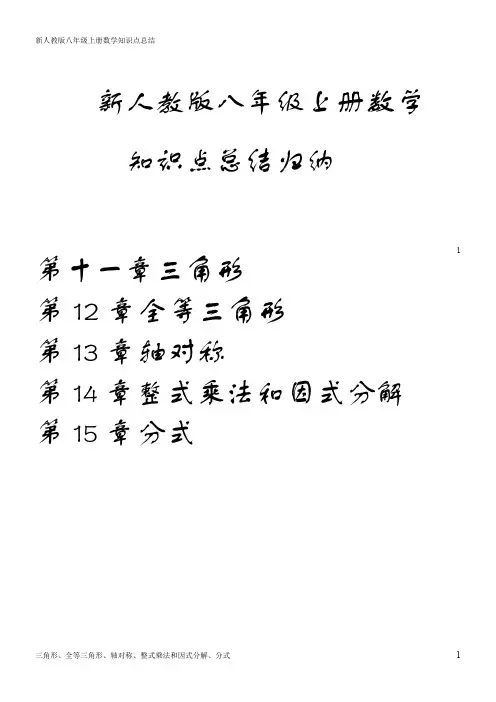 新人教版八年级上册数学知识点总结
新人教版八年级上册数学
知识点总结归纳
1
第十一章三角形
第 12 章全等三角形
第 13 章轴对称
第 14 章整式乘法和因式分解
第 15 章分式
三角形、全等三角形、轴对称、整式乘法和因式分解、分式 1